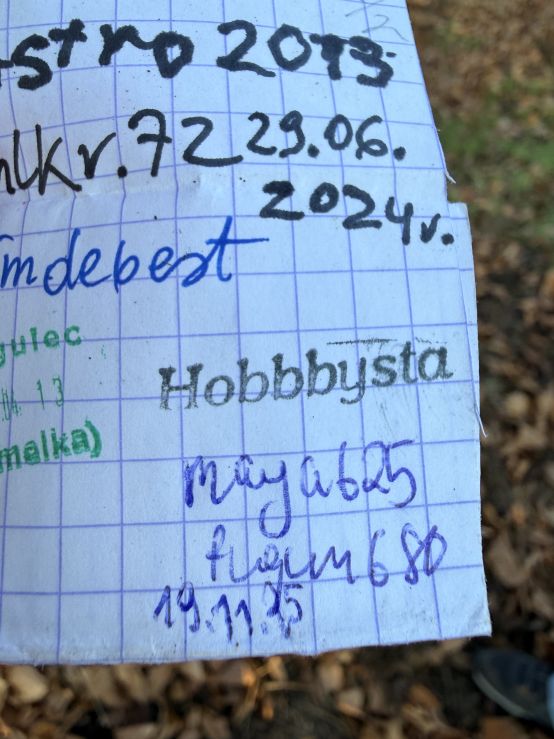 stro 2013
lkr.72 29.06.
2024r.
mdebest
gulec
13
malka)
Hobbbysta
maya625
680
19.11.25